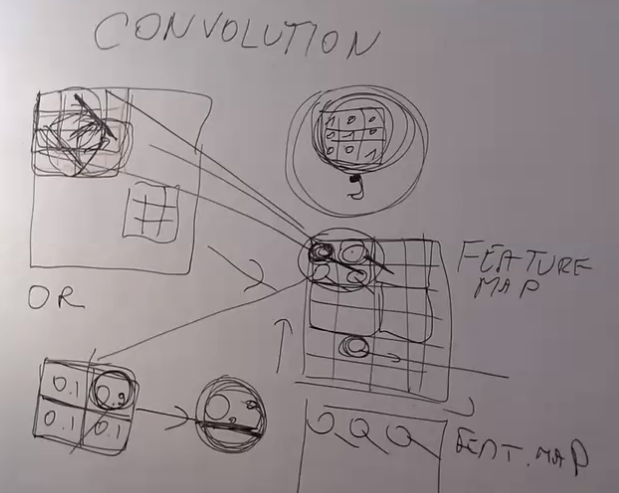 CONVOLUTION
1 0 0
0 1 0
0 0 1
9
FEATURE
MAP
OR
0.1 0.9
0.1 0.1
0.9
FEAT. MAP